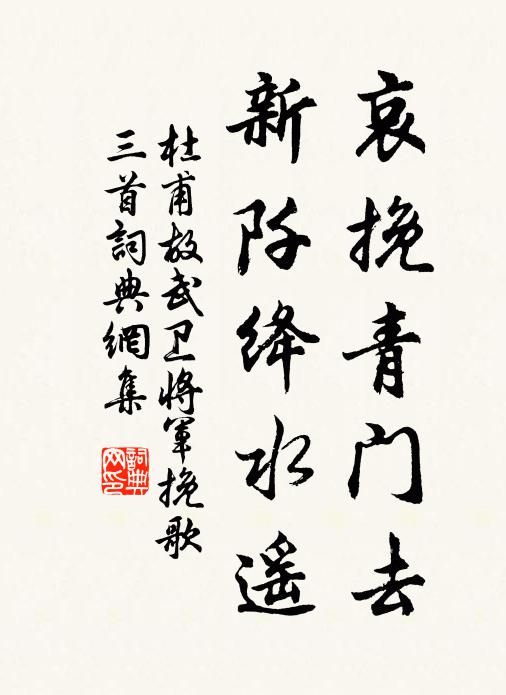 哀挽青门去
新阡绛水遥
杜甫故武卫将軍挽歌
三首詞典網集
詞典网印